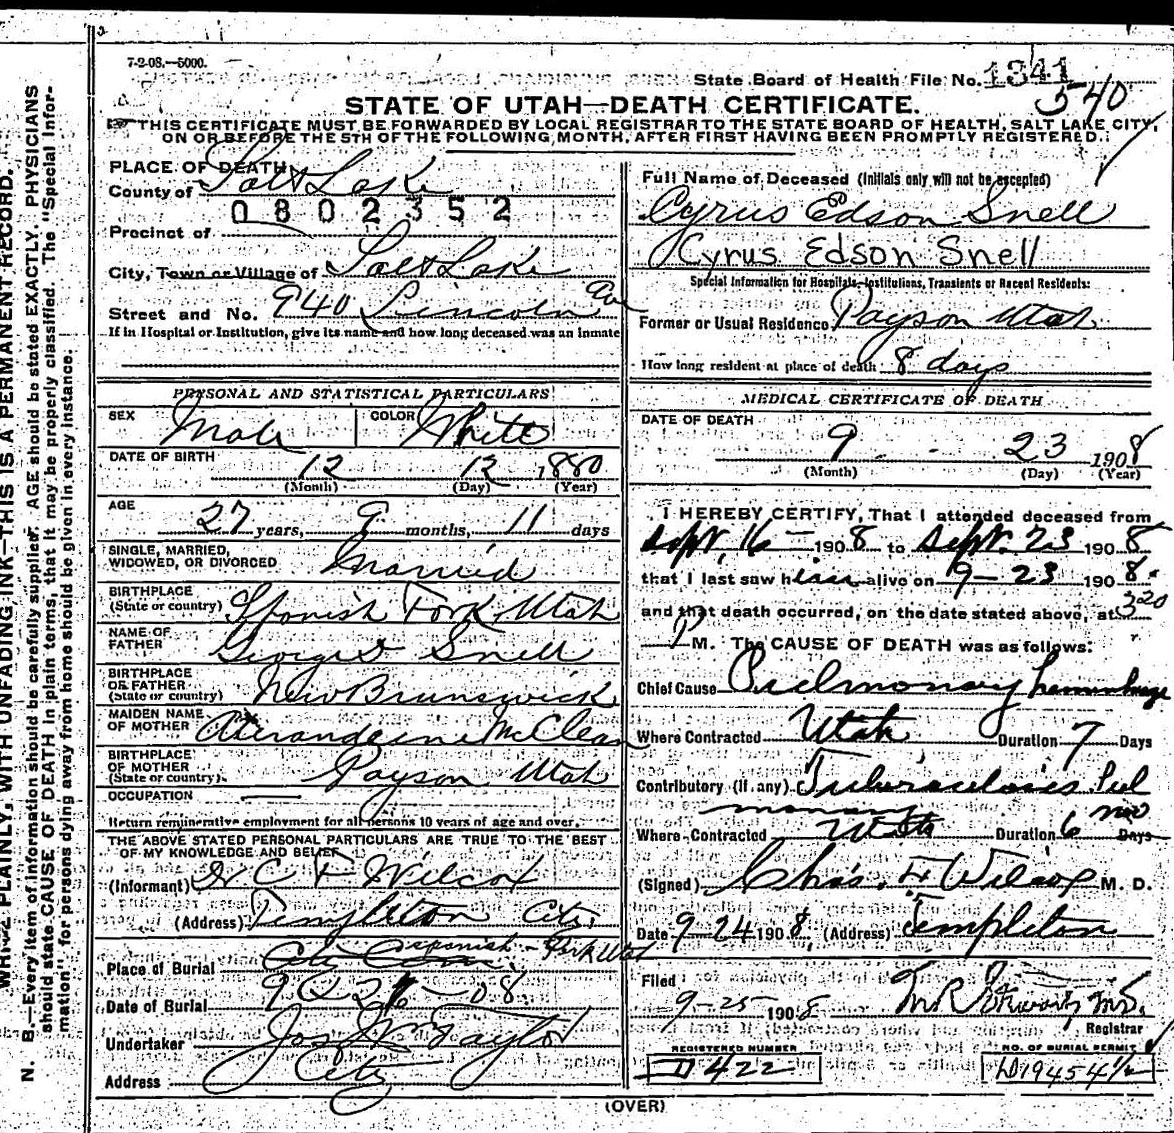 WRITE PLAINLY, WITH UNFADING INK—THIS IS A PERMANENT RECORD.
N. B.—Every item of information should be carefully supplied. AGE should be stated EXACTLY. PHYSICIANS
should state CAUSE OF DEATH in plain terms, that it may be properly classified. The "Special Infor-
mation" for persons dying away from home should be given in every instance.
7-2-08.—5000.
State Board of Health File No. 1341
540
STATE OF UTAH—DEATH CERTIFICATE.
THIS CERTIFICATE MUST BE FORWARDED BY LOCAL REGISTRAR TO THE STATE BOARD OF HEALTH, SALT LAKE CITY,
ON OR BEFORE THE 5TH OF THE FOLLOWING MONTH, AFTER FIRST HAVING BEEN PROMPTLY REGISTERED.
PLACE OF DEATH
County of Salt Lake
0802352
Precinct of
City, Town or Village of Salt Lake
Street and No. 940 Lincoln Ave
If in Hospital or Institution, give its name and how long deceased was an inmate
PERSONAL AND STATISTICAL PARTICULARS
SEX Male COLOR White
DATE OF BIRTH 12 12 1880
(Month) (Day) (Year)
AGE 27 years, 9 months, 11 days
SINGLE, MARRIED,
WIDOWED, OR DIVORCED Married
BIRTHPLACE
(State or country) Spanish Fork, Utah
NAME OF
FATHER George D Snell
BIRTHPLACE
OF FATHER
(State or country) New Brunswick
MAIDEN NAME
OF MOTHER McClean
BIRTHPLACE
OF MOTHER
(State or country) Payson Utah
OCCUPATION
Return remunerative employment for all persons 10 years of age and over.
THE ABOVE STATED PERSONAL PARTICULARS ARE TRUE TO THE BEST
OF MY KNOWLEDGE AND BELIEF
(Informant) C F Wilcox
(Address) Templeton City
Place of Burial City Cem. Spanish Fork Utah
Date of Burial 9 26-08
Undertaker Jos Wm Taylor
Address City
Full Name of Deceased (Initials only will not be accepted)
Cyrus Edson Snell
Cyrus Edson Snell
Special Information for Hospitals, Institutions, Transients or Recent Residents:
Former or Usual Residence Payson Utah
How long resident at place of death 8 days
MEDICAL CERTIFICATE OF DEATH
DATE OF DEATH
9 23 1908
(Month) (Day) (Year)
I HEREBY CERTIFY, That I attended deceased from
Sept. 16 — 1908 to Sept. 23 1908
that I last saw him alive on 9-23 1908
and that death occurred, on the date stated above, at 3 20
P M. The CAUSE OF DEATH was as follows:
Chief Cause Pulmonary hemorrhage
Where Contracted Utah Duration 7 Days
Contributory (if any) Tuberculosis Pul
monary
Where Contracted Utah Duration 6 mo Days
(Signed) Chas. F Wilcox M. D.
Date 9-24 1908, (Address) Templeton
Filed
9-25-1908
Registrar
REGISTERED NUMBER NO. OF BURIAL PERMIT
D 422 D19454½
(OVER)